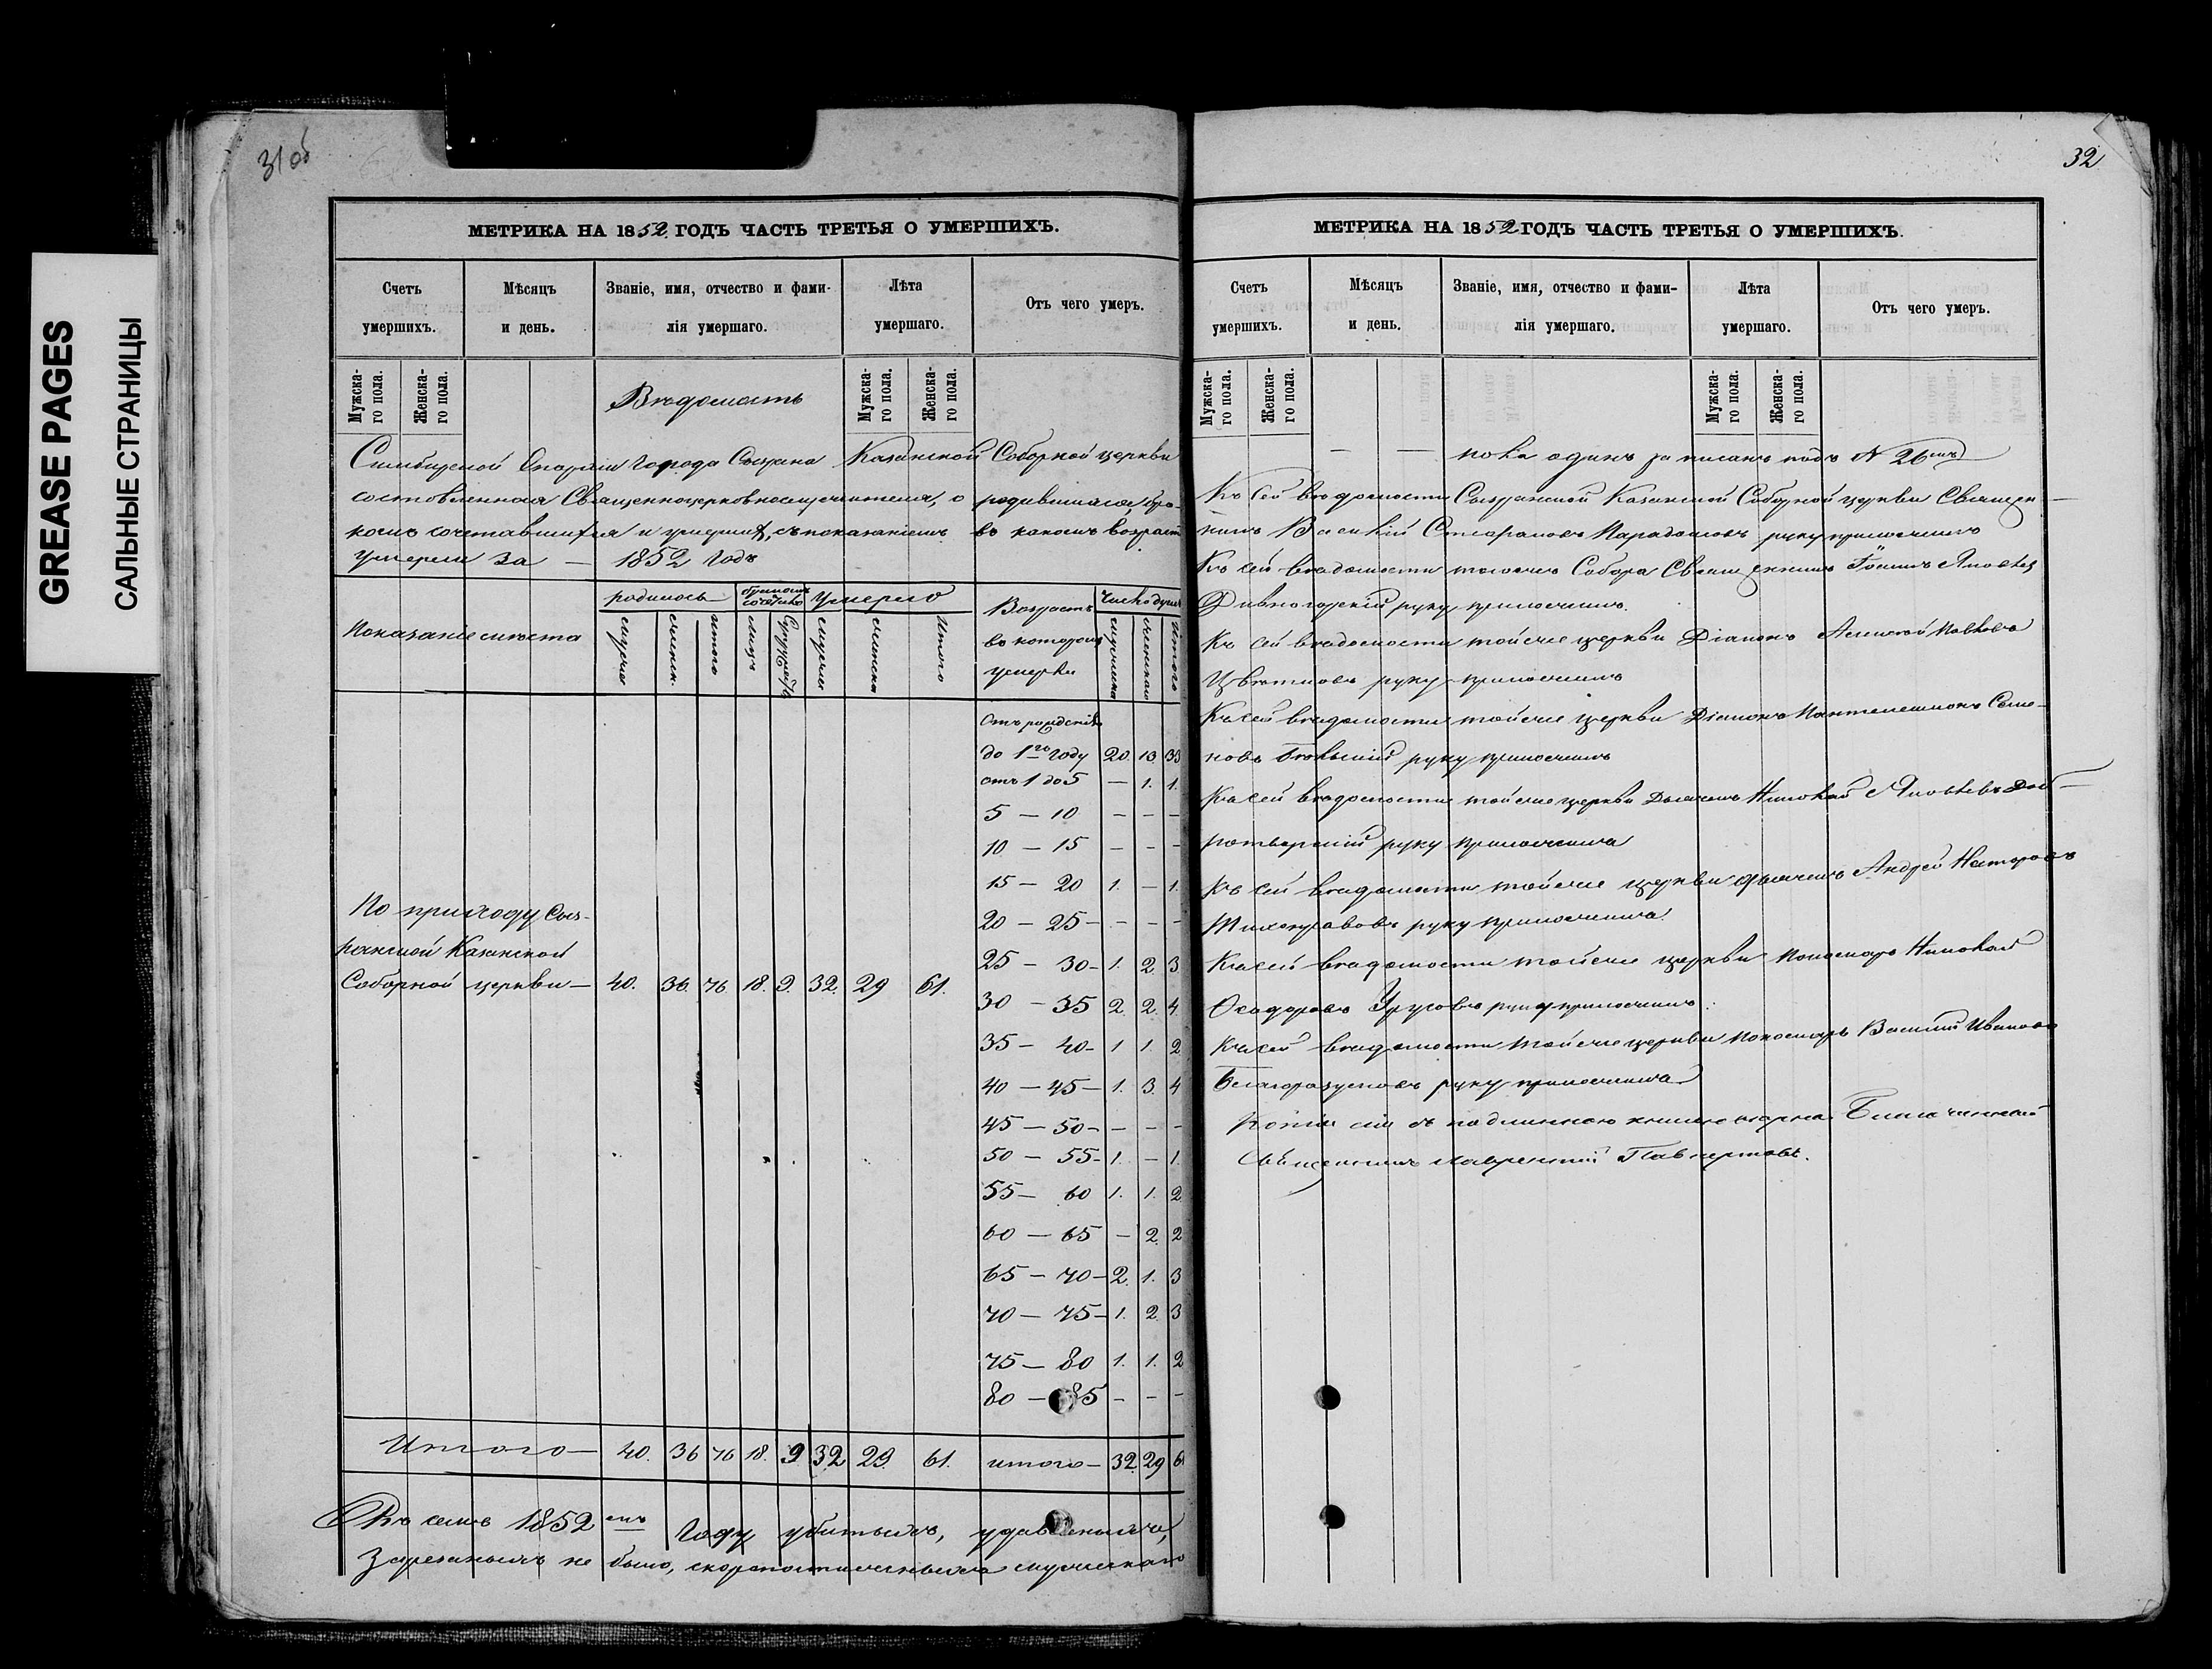 GREASE PAGES
САЛЬНЫЕ СТРАНИЦЫ
31 об
МЕТРИКА НА 1852 ГОДЪ ЧАСТЬ ТРЕТЬЯ О УМЕРШИХЪ.
Счетъ умершихъ.
Мѣсяцъ и день.
Званіе, имя, отчество и фами-
лія умершаго.
Лѣта умершаго.
Отъ чего умеръ.
Мужска-
го пола.
Женска-
го пола.
Мужска-
го пола.
Женска-
го пола.
Вѣдомость
Симбирской Епархіи Города Сызрана Казанской Соборной церкви
составленная Священноцерковнослужителями, о родившихся, бра-
комъ сочетавшихся и умершихъ, съ показаніемъ въ какомъ возрастѣ
умерли за — 1852 годъ
Показаніе мѣста
родилось
бракомъ сочетано
Умерло
Возрастъ въ которомъ умерли
Число душъ
мужска
женск.
итого
лицъ
Супружествъ
мужска
женска
итого
мужска
женска
итого
Отъ рожденія
до 1го году 20. 13 33
отъ 1 до 5 — 1. 1.
5 — 10 — — —
10 — 15 — — —
15 — 20 1. — 1.
20 — 25 — — —
25 — 30 — 1. 2. 3
30 — 35 2. 2. 4
35 — 40 — 1 1. 2
40 — 45 — 1. 3. 4
45 — 50 — — — —
50 — 55 — 1. — 1.
55 — 60 1. 1. 2
60 — 65 — 2. 2
65 — 70 — 2. 1. 3
70 — 75 — 1. 2. 3
75 — 80 1. 1. 2
80 — 85 — — —
По приходу Сыз-
ранской Казанской
Соборной церкви — 40. 36. 76. 18. 9. 32. 29 61.
Итого — 40. 36 76 18. 9 32 29. 61. итого — 32. 29 6
Въ семъ 1852 омъ году убитыхъ, удавленныхъ,
Зарезаныхъ не было, скоропостижныхъ мужскаго
32
МЕТРИКА НА 1852 ГОДЪ ЧАСТЬ ТРЕТЬЯ О УМЕРШИХЪ.
Счетъ умершихъ.
Мѣсяцъ и день.
Званіе, имя, отчество и фами-
лія умершаго.
Лѣта умершаго.
Отъ чего умеръ.
Мужска-
го пола.
Женска-
го пола.
Мужска-
го пола.
Женска-
го пола.
— — пола одинъ записанъ подъ N 26мъ
Къ сей вѣдомости Сызранской Казанской Соборной церкви Священ-
никъ Василій Стефановъ Парадоксовъ руку приложилъ
Къ сей вѣдомости тогоже Собора Священникъ Іоаннъ Яковлев
Дивногорскій руку приложилъ.
Къ сей вѣдомости тойже церкви Діаконъ Алексѣй Павловъ
Цвѣтковъ руку приложилъ
Къ сей вѣдомости тойже церкви Діаконъ Пантелеимонъ Семе-
новъ руку приложилъ
Къ сей вѣдомости тойже церкви Дьячекъ Николай Яковлевъ Доб-
ротворскій руку приложилъ
Къ сей вѣдомости тойже церкви дьячекъ Андрей
Тихонравовъ руку приложилъ.
Къ сей вѣдомости тойже церкви пономарь Николай
Ѳеодоровъ Урусовъ руку приложилъ.
Къ сей вѣдомости тойже церкви пономарь Василій Ивановъ
Благоразумовъ руку приложилъ
Копія сія съ подлинною книгою вѣрна Благочинный
Священникъ Лаврентій